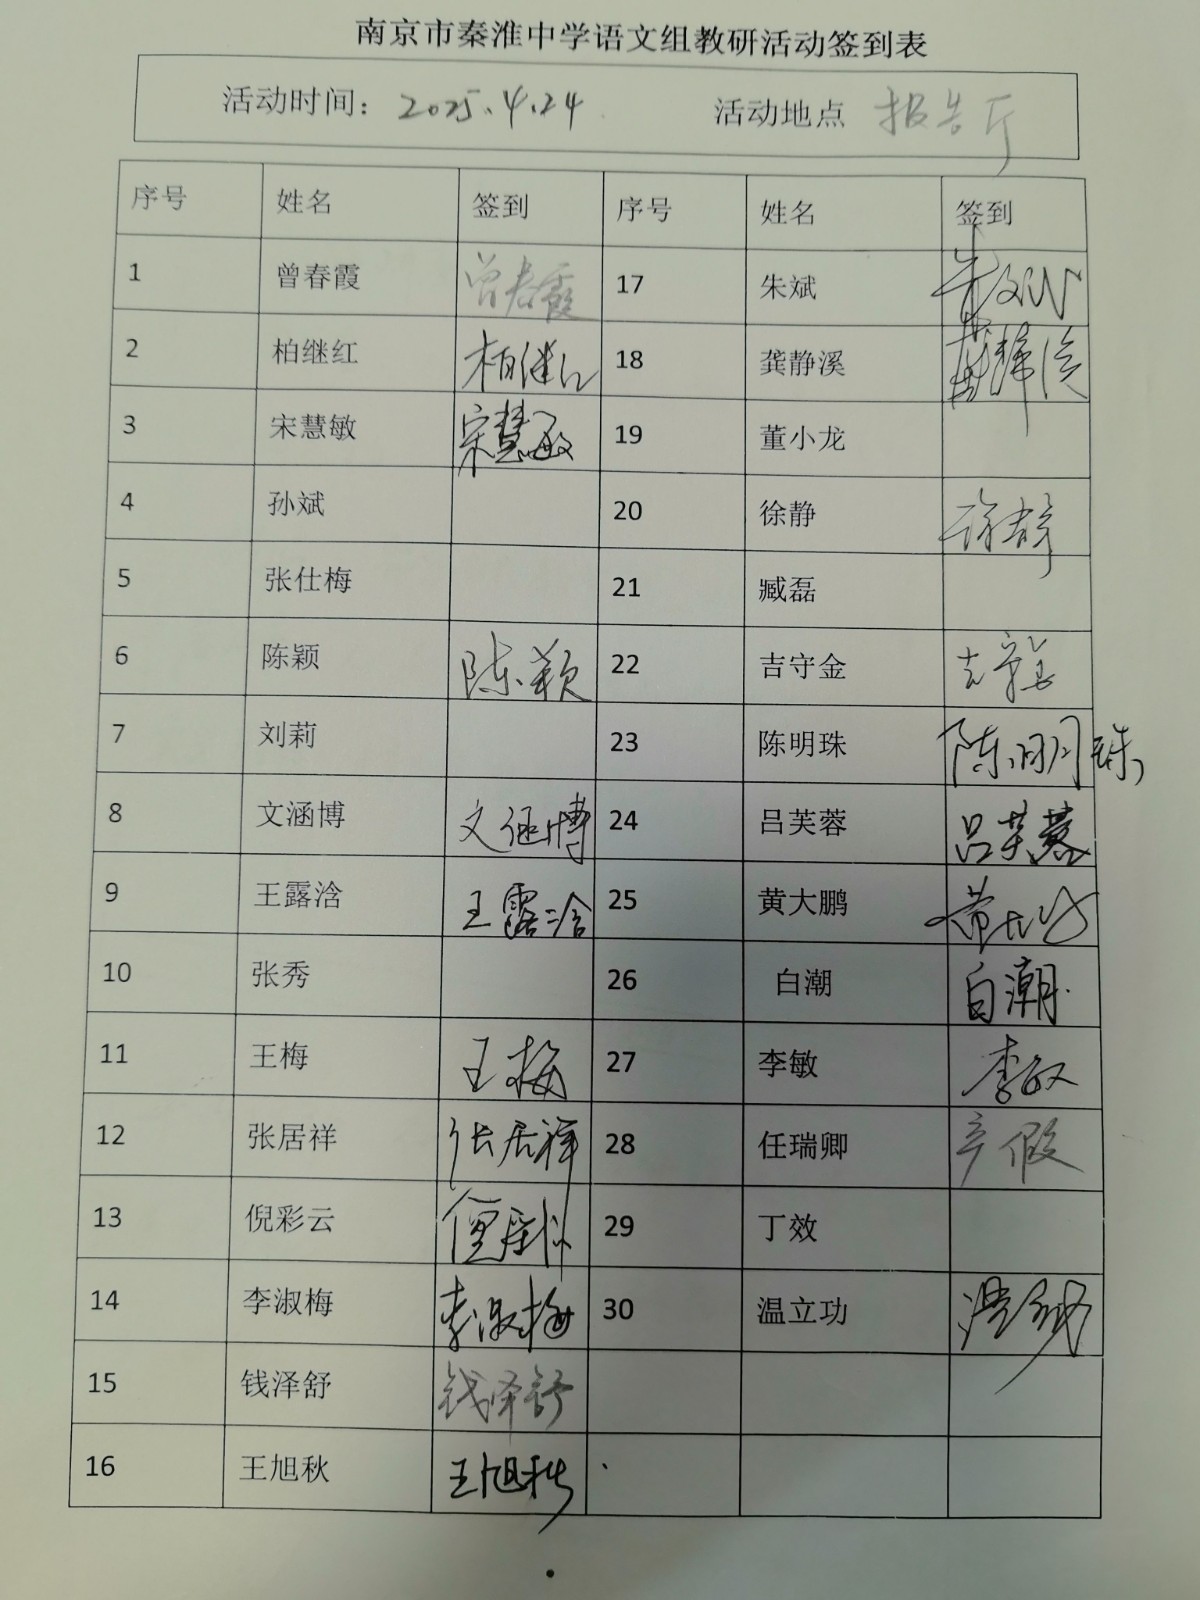 南京市秦淮中学语文组教研活动签到表
活动时间：2025.4.24 活动地点 报告厅
序号 姓名 签到 序号 姓名 签到
1 曾春霞 曾春霞 17 朱斌 朱斌
2 柏继红 柏继红 18 龚静溪 龚静溪
3 宋慧敏 宋慧敏 19 董小龙
4 孙斌 20 徐静 徐静
5 张仕梅 21 臧磊
6 陈颖 陈颖 22 吉守金 吉守金
7 刘莉 23 陈明珠 陈明珠
8 文涵博 文涵博 24 吕芙蓉 吕芙蓉
9 王露浛 王露浛 25 黄大鹏 黄大鹏
10 张秀 26 白潮 白潮
11 王梅 王梅 27 李敏 李敏
12 张居祥 张居祥 28 任瑞卿 产假
13 倪彩云 29 丁效
14 李淑梅 李淑梅 30 温立功 温立功
15 钱泽舒 钱泽舒
16 王旭秋 王旭秋